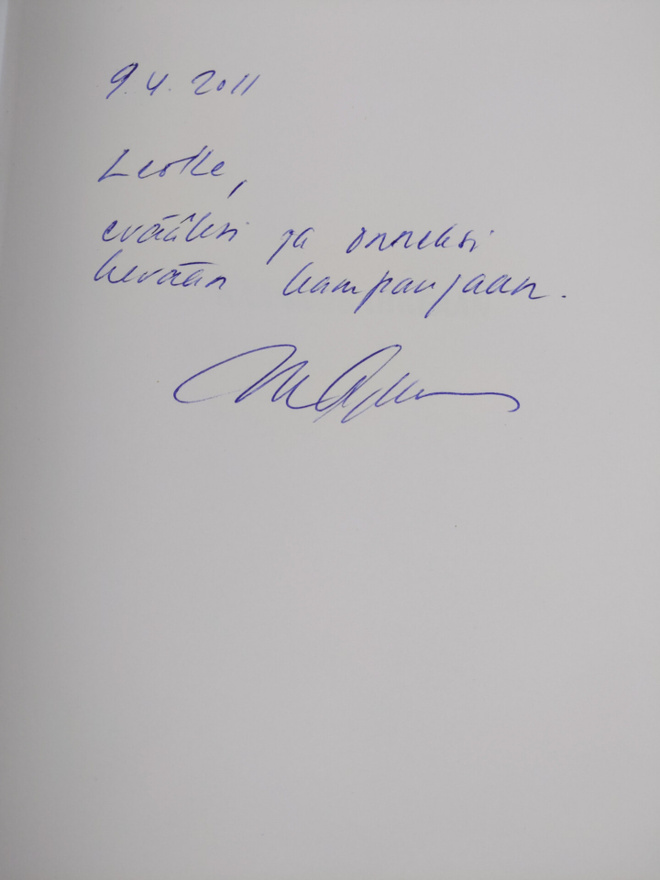 9.4.2011
Leolle,
evääksi ja onneksi
kevään kampanjaan.